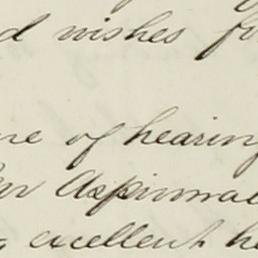 d wishes fo
re of hearing
Mr Aspinwal
g excellent he